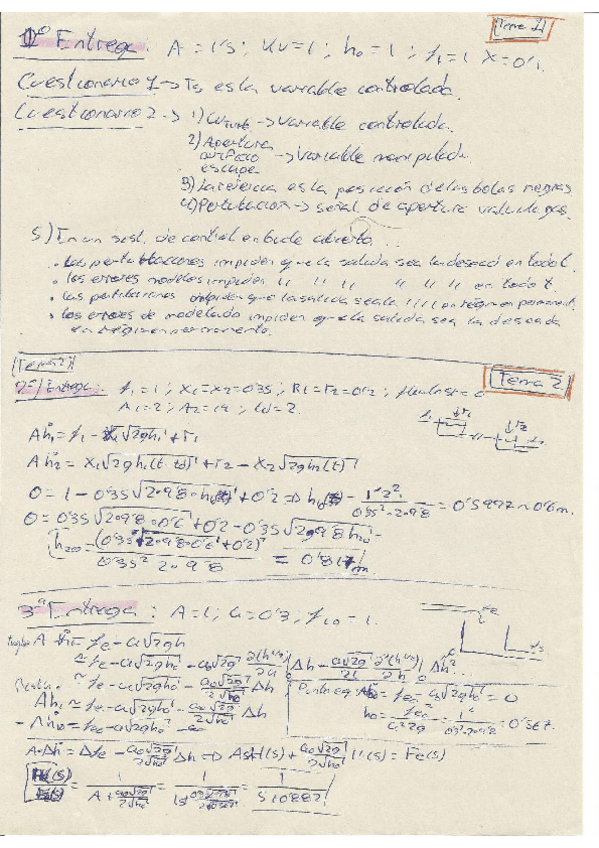 Tema 1
1ª Entrega: A = 1'5 ; Kv = 1 ; h₀ = 1 ; f₁ = 1 X = 0'1.
Cuestionario 1 → Ts es la variable controlada.
Cuestionario 2 → 1) → variable controlada.
2) Apertura orificio escape → variable manipulada
3) La referencia es la posición de las bolas negras
4) Perturbacion → señal de apertura valvula gas.
5) En un sist. de control en bucle abierto...
• las perturbaciones impiden que la salida sea la desead en todo t.
• los errores modelos impiden " " " " " " en todo t.
• las perturbaciones impiden que la salida sea la " " en régimen permanent.
• los errores de modelado impiden que la salida sea la deseada
en régimen permanente.
(Tema 2)
Tema 2
2ª Entrega: f₁ = 1 ; X₁ = X₂ = 0'35 ; R₁ = r₂ = 0'2 ;
A₁ = 2 ; A₂ = ; td = 2.
Aḣ₁ = f₁ - X₁√2gh₁ + r₁
Aḣ₂ = X₁√2gh₁(t-td) + r₂ - X₂√2gh₂(t)
0 = 1 - 0'35√2·9'8·h₁₀ + 0'2 ⇒ h₁₀ = 1'2² / 0'35²·2·9'8 = 0'5997 ≈ 0'6 m.
0 = 0'35√2·9'8·0'6 + 0'2 - 0'35√2·9'8·h₂₀
h₂₀ = (0'35√2·9'8·0'6 + 0'2)² / 0'35² 2·9'8 = 0'817 m
3ª Entrega: A = 1 ; a = 0'3 ; f₁₀ = 1.
fe
fs
A ḣ = fe - a√2gh
≈ fe - a√2gh₀ - a√2g ∂(h^1/2)/∂h Δh - a√2g/2! ∂²(h^1/2)/∂h Δh² ...
≈ fe - a√2gh₀ - a√2g/2√h₀ Δh
Aḣ ≈ fe - a√2gh₀ - a√2g/2√h₀ Δh
- Aḣ₀ = fe₀ - a√2gh₀
Aḣ₀ = fe₀ - a√2gh₀ = 0
h₀ = fe₀² / a²2g = 1² / 0'3²·2·9'8 = 0'567.
A·Δḣ = Δfe - a√2g/2√h₀ Δh ⇒ AsH(s) + a√2g/2√h₀ H(s) = Fe(s)
H(s)/Fe(s) = 1 / A + a√2g/2√h₀ = 1 / 1s + = 1 / s + 0'882